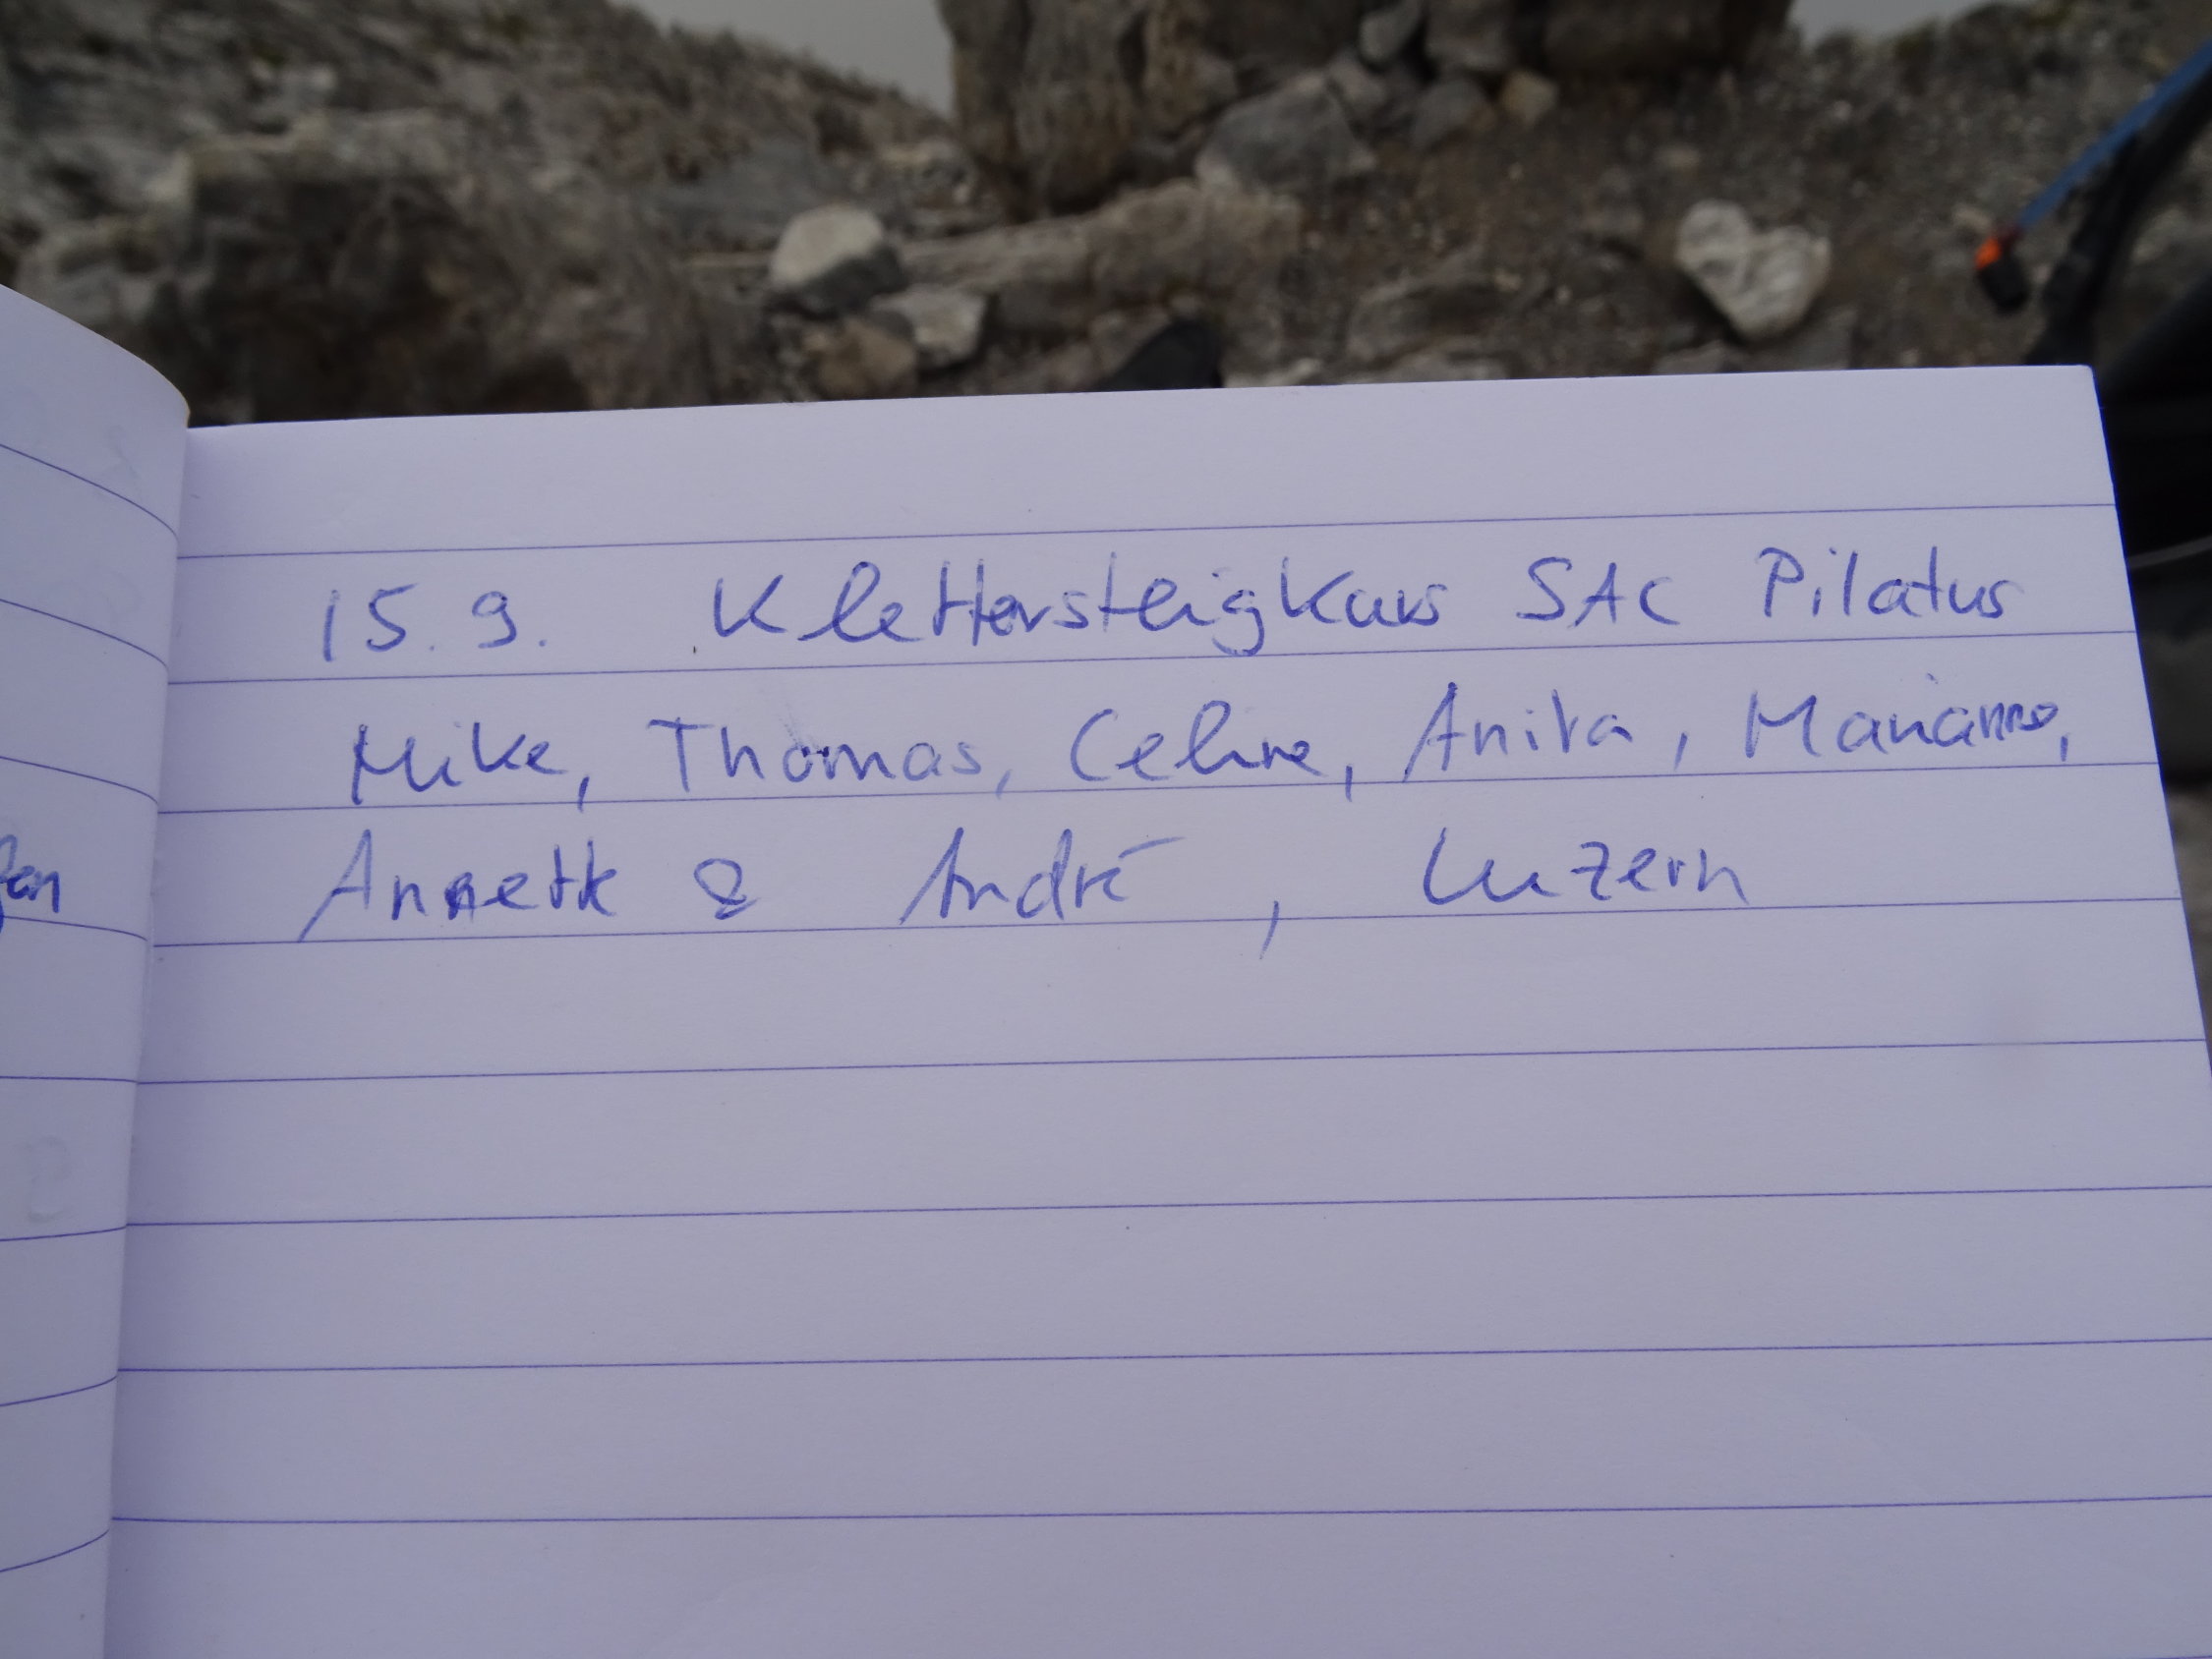 15.9. Klettersteigkurs SAC Pilatus
Mike, Thomas, Celine, Anita, Marianne,
Annette & André, Luzern